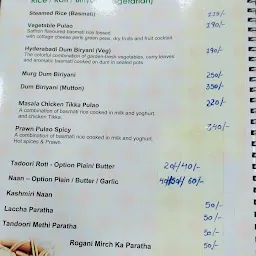 Rice / Roti / Biryani (Vegetarian)
Steamed Rice (Basmati) 225/-
Vegetable Pulao 290/-
Saffron flavoured basmati rice tossed
with cottage cheese, peas, green peas, dry fruits and fruit cocktail
Hyderabadi Dum Biryani (Veg) 290/-
The colorful combination of garden-fresh vegetables, curry leaves
and aromatic basmati cooked on dum in sealed pots
Murg Dum Biriyani 250/-
Dum Biriyani (Mutton) 350/-
Masala Chicken Tikka Pulao 220/-
A combination of basmati rice cooked in milk and yoghurt,
and chicken Tikka.
Prawn Pulao Spicy 340/-
A combination of basmati rice cooked in milk and yoghurt,
Hot spices & Prawn
Tadoori Roti - Option Plain/ Butter 20/-/40/-
Naan – Option Plain / Butter / Garlic 40/50/ 60/-
Kashmiri Naan
Laccha Paratha 50/-
Tandoori Methi Paratha 50/-
Rogani Mirch Ka Paratha 50/-
50/-